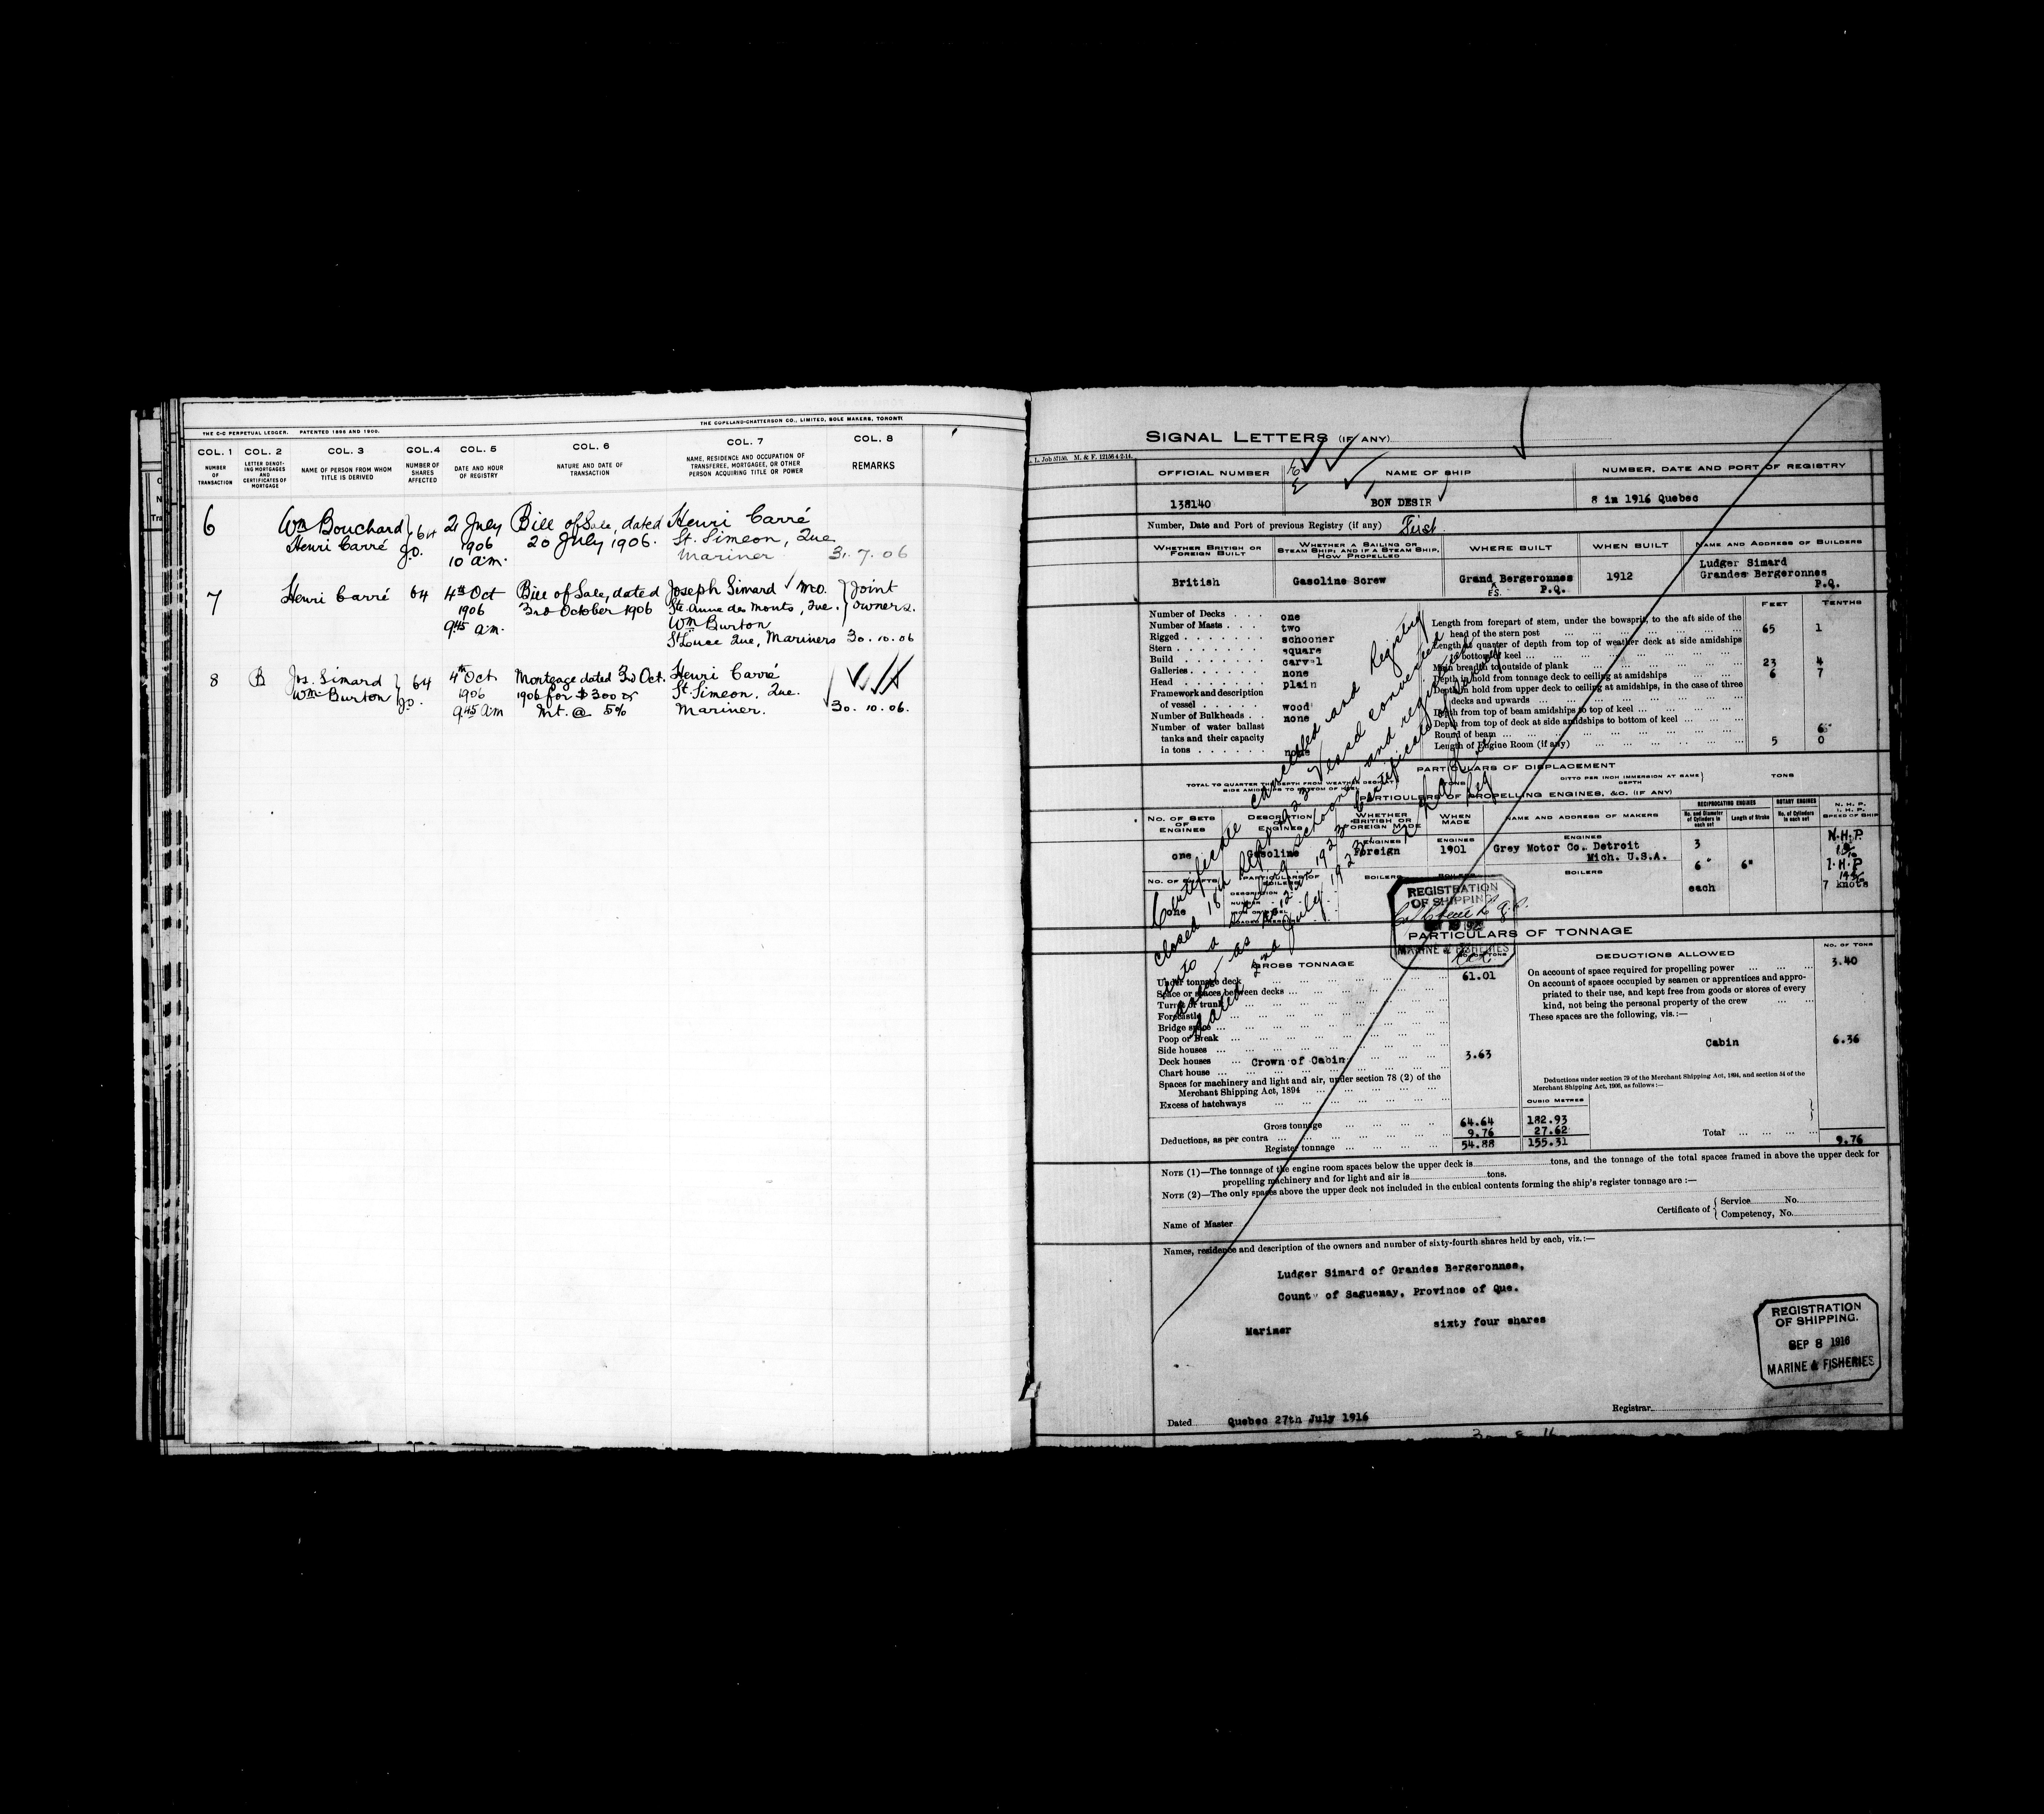 THE C-C PERPETUAL LEDGER. PATENTED 1896 AND 1900.
THE COPELAND-CHATTERSON CO., LIMITED, SOLE MAKERS, TORONTO
COL. 1 COL. 2 COL. 3 COL.4 COL. 5 COL. 6 COL. 7 COL. 8
NUMBER OF TRANSACTION
LETTER DENOTING MORTGAGES AND CERTIFICATES OF MORTGAGE
NAME OF PERSON FROM WHOM TITLE IS DERIVED
NUMBER OF SHARES AFFECTED
DATE AND HOUR OF REGISTRY
NATURE AND DATE OF TRANSACTION
NAME, RESIDENCE AND OCCUPATION OF TRANSFEREE, MORTGAGEE, OR OTHER PERSON ACQUIRING TITLE OR POWER
REMARKS
6 Wm Bouchard } 64 21 July Bill of Sale, dated Henri Carré
Henri Carré J.O. 1906 20 July 1906. St. Simeon, Que
10 a.m. Mariner 31.7.06
7 Henri Carré 64 4th Oct Bill of Sale, dated Joseph Simard MO. } Joint
1906 3rd October 1906 Ste Anne des Monts, Que. } owners.
9.45 a.m. Wm Burton
St Luce Que, Mariners 30.10.06
8 B Jos. Simard } 64 4th Oct Mortgage dated 3rd Oct. Henri Carré
Wm Burton J.O. 1906 1906 for $300 St. Simeon, Que.
9.45 am Int. @ 5% Mariner. 30.10.06.
SIGNAL LETTERS (IF ANY)
L. Job 57150. M. & F. 12156 4-2-14.
OFFICIAL NUMBER NAME OF SHIP NUMBER, DATE AND PORT OF REGISTRY
138140 BON DESIR 8 in 1916 Quebec
Number, Date and Port of previous Registry (if any) First
WHETHER BRITISH OR FOREIGN BUILT
WHETHER A SAILING OR STEAM SHIP; AND IF A STEAM SHIP, HOW PROPELLED
WHERE BUILT WHEN BUILT NAME AND ADDRESS OF BUILDERS
British Gasoline Screw Grand Bergeronnes 1912 Ludger Simard
ES. P.Q. Grandes Bergeronnes
P.Q.
FEET TENTHS
Number of Decks one
Number of Masts two
Rigged schooner
Stern square
Build carvel
Galleries none
Head plain
Framework and description
of vessel wood
Number of Bulkheads none
Number of water ballast
tanks and their capacity
in tons none
Length from forepart of stem, under the bowsprit, to the aft side of the
head of the stern post 65 1
Length at quarter of depth from top of weather deck at side amidships
to bottom of keel
Main breadth to outside of plank 23 4
Depth in hold from tonnage deck to ceiling at amidships 6 7
Depth in hold from upper deck to ceiling at amidships, in the case of three
decks and upwards
Depth from top of beam amidships to top of keel
Depth from top of deck at side amidships to bottom of keel
Round of beam 6
Length of Engine Room (if any) 5 0
PARTICULARS OF DISPLACEMENT
TOTAL TO QUARTER THE DEPTH FROM WEATHER DECK AT SIDE AMIDSHIPS TO BOTTOM OF KEEL
DITTO PER INCH IMMERSION AT SAME DEPTH TONS
PARTICULARS OF PROPELLING ENGINES, &C. (IF ANY)
NO. OF SETS OF ENGINES
DESCRIPTION OF ENGINES
WHETHER BRITISH OR FOREIGN MADE
WHEN MADE
NAME AND ADDRESS OF MAKERS
RECIPROCATING ENGINES ROTARY ENGINES
No. and Diameter of Cylinders in each set Length of Stroke No. of Cylinders in each set
N. H. P. I. H. P. SPEED OF SHIP
ENGINES ENGINES ENGINES
one Gasoline Foreign 1901 Grey Motor Co. Detroit 3 N.H.P.
Mich. U.S.A. 6" 6" I.H.P
NO. OF SHAFTS PARTICULARS OF BOILERS BOILERS BOILERS BOILERS
one each 7 knots
Certificate cancelled and Registry
closed 18th Sept 1923 Vessel converted
into a sailing schooner and registered
anew as No 12 in 1923 Certificate of Survey
dated 2nd July 1923
REGISTRATION
OF SHIPPING
MARINE & FISHERIES
PARTICULARS OF TONNAGE
GROSS TONNAGE NO. OF TONS DEDUCTIONS ALLOWED NO. OF TONS
Under tonnage deck 61.01
Space or spaces between decks
Turret or trunk
Forecastle
Bridge space
Poop or break
Side houses
Deck houses Crown of Cabin 3.63
Chart house
Spaces for machinery and light and air, under section 78 (2) of the
Merchant Shipping Act, 1894
Excess of hatchways
On account of space required for propelling power 3.40
On account of spaces occupied by seamen or apprentices and appro-
priated to their use, and kept free from goods or stores of every
kind, not being the personal property of the crew
These spaces are the following, vis.:—
Cabin 6.36
Deductions under section 79 of the Merchant Shipping Act, 1894, and section 54 of the
Merchant Shipping Act, 1906, as follows:—
CUBIC METRES
Gross tonnage 64.64 182.93
Deductions, as per contra 9.76 27.62
Register tonnage 54.88 155.31
Total 9.76
NOTE (1)—The tonnage of the engine room spaces below the upper deck is tons, and the tonnage of the total spaces framed in above the upper deck for
propelling machinery and for light and air is tons.
NOTE (2)—The only spaces above the upper deck not included in the cubical contents forming the ship's register tonnage are :—
Name of Master
Certificate of { Service No.
Competency, No.
Names, residence and description of the owners and number of sixty-fourth shares held by each, viz.:—
Ludger Simard of Grandes Bergeronnes,
County of Saguenay, Province of Que.
Mariner sixty four shares
REGISTRATION
OF SHIPPING.
SEP 8 1916
MARINE & FISHERIES
Dated Quebec 27th July 1916
Registrar